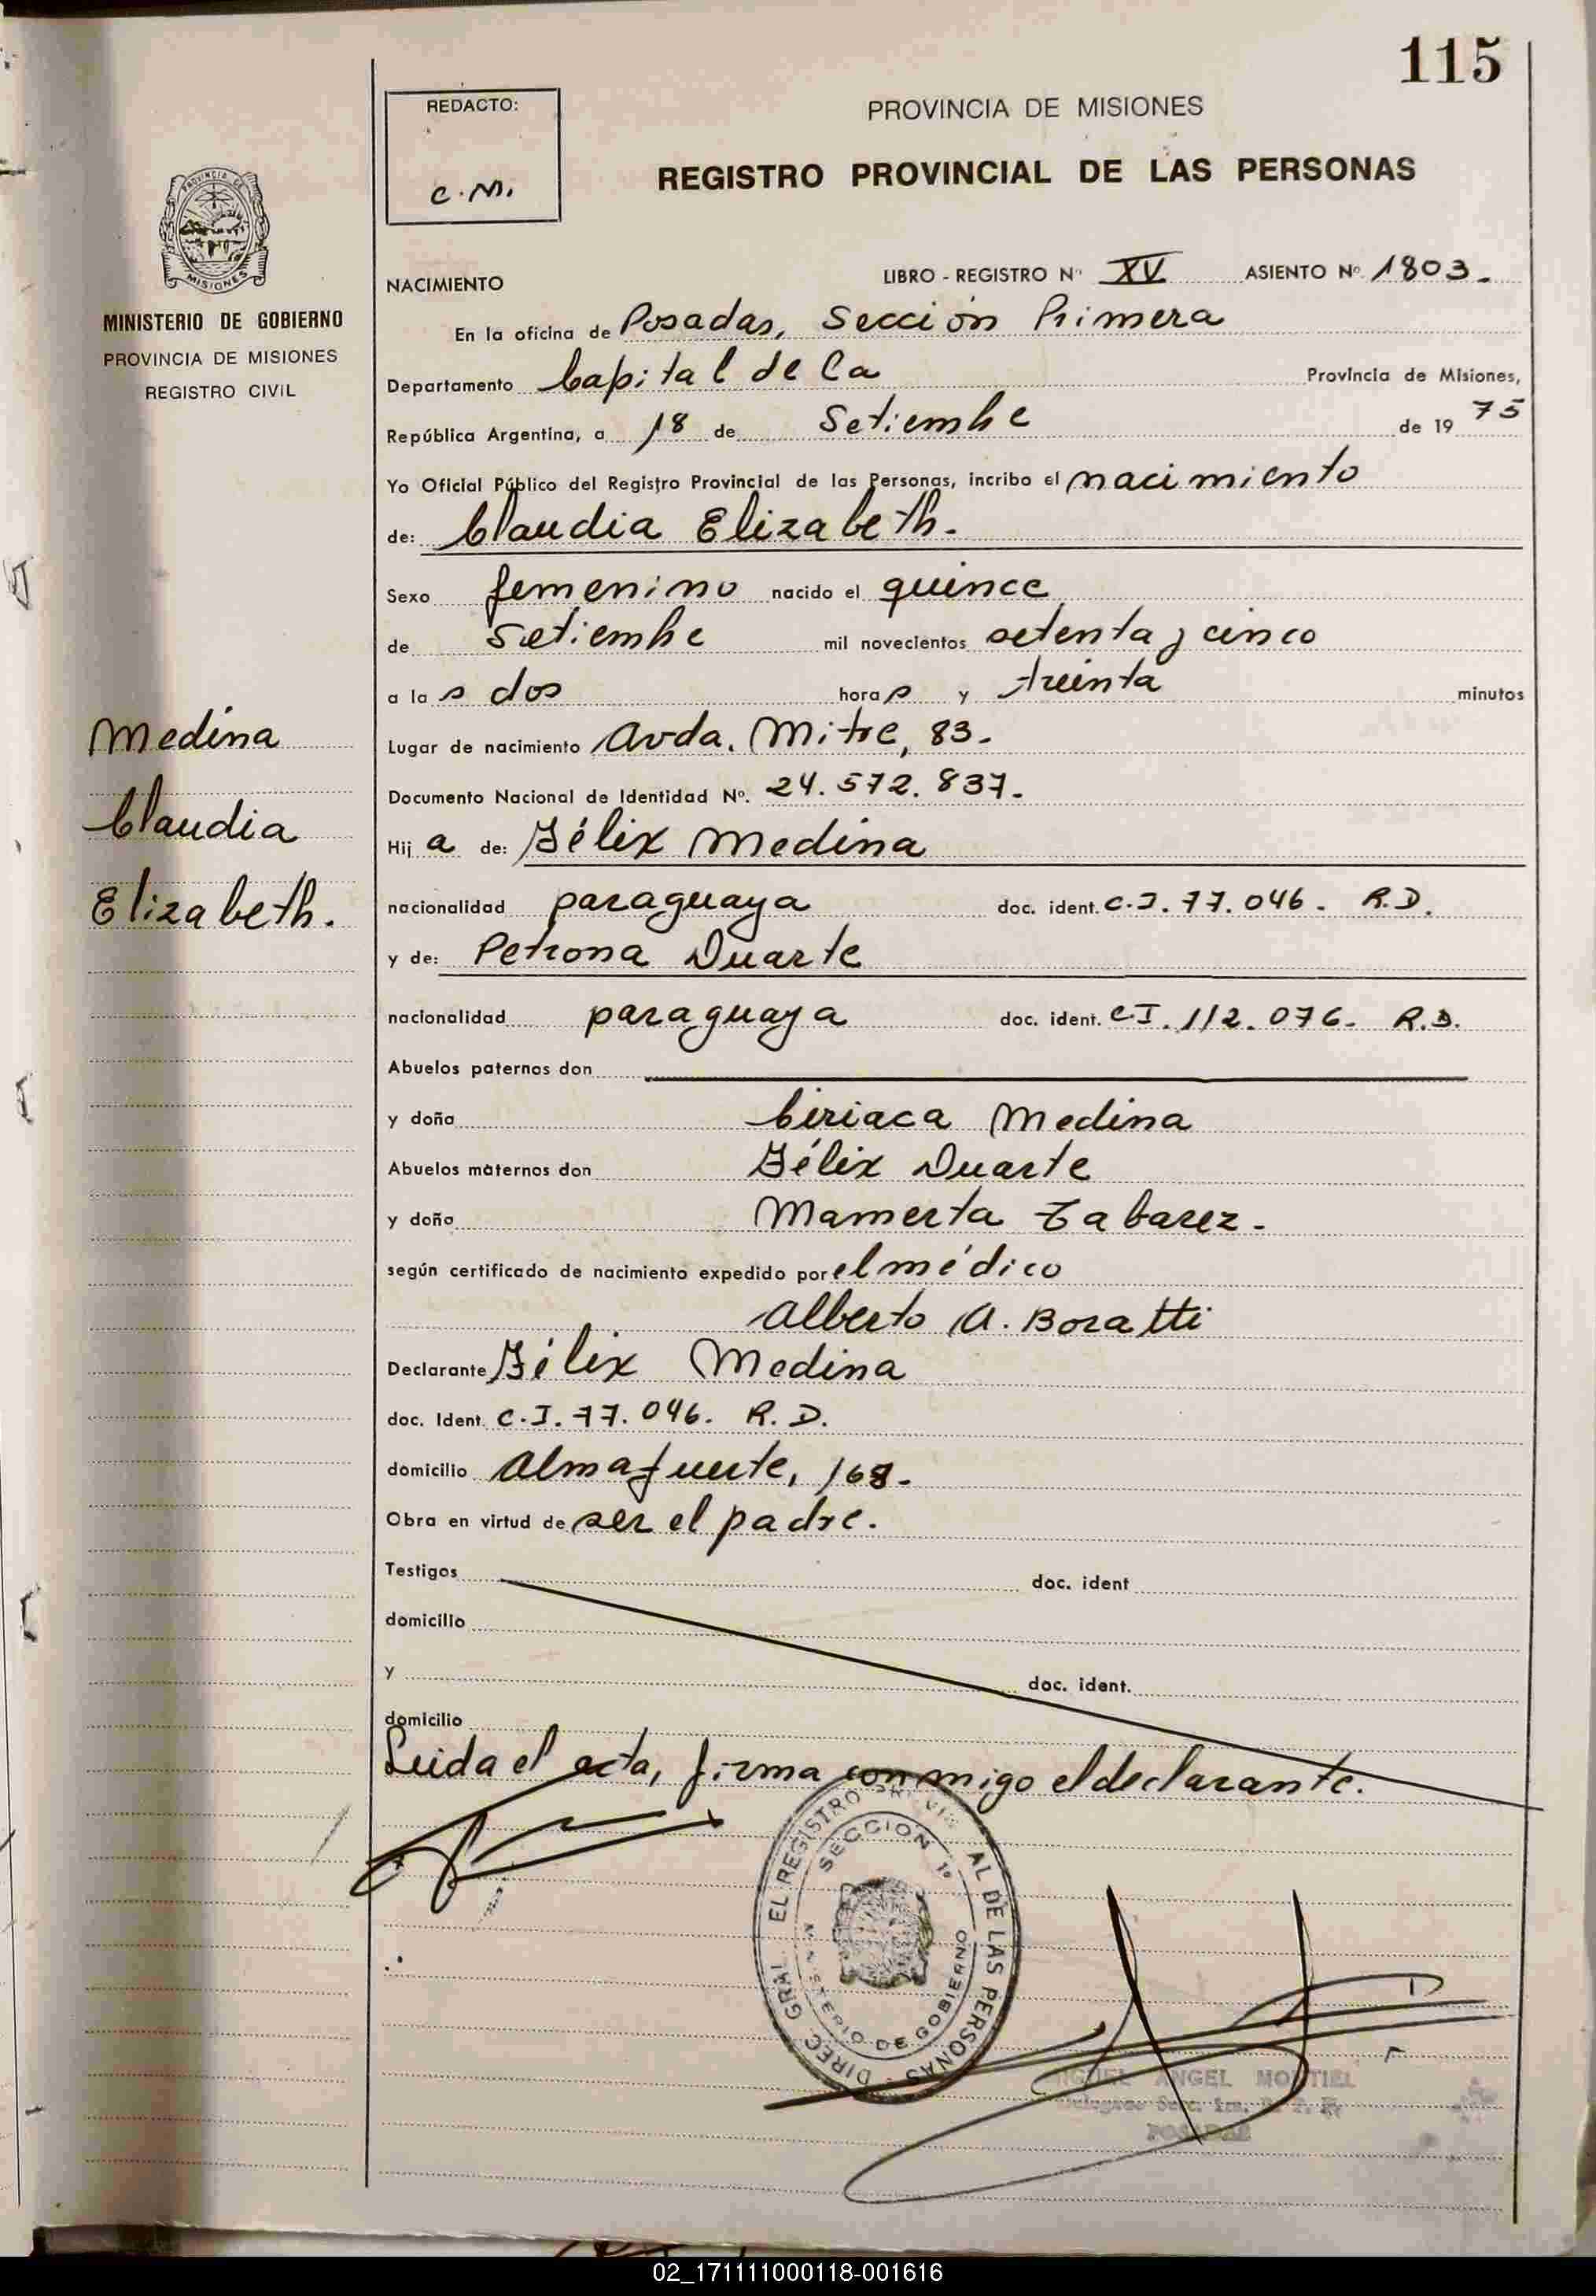 115
REDACTO:
C.M.
PROVINCIA DE MISIONES
REGISTRO PROVINCIAL DE LAS PERSONAS
PROVINCIA DE
MISIONES
MINISTERIO DE GOBIERNO
PROVINCIA DE MISIONES
REGISTRO CIVIL
Medina
Claudia
Elizabeth.
NACIMIENTO LIBRO - REGISTRO Nº XV ASIENTO Nº 1803.
En la oficina de Posadas, Sección Primera
Departamento Capital de la Provincia de Misiones,
República Argentina, a 18 de Setiembre de 19 75
Yo Oficial Público del Registro Provincial de las Personas, incribo el nacimiento
de: Claudia Elizabeth.
Sexo femenino nacido el quince
de Setiembre mil novecientos setenta y cinco
a la s dos hora s y treinta minutos
Lugar de nacimiento Avda. Mitre, 83.
Documento Nacional de Identidad Nº. 24.572.837.
Hij a de: Félix Medina
nacionalidad paraguaya doc. ident. C.I. 77.046. R.D.
y de: Petrona Duarte
nacionalidad paraguaya doc. ident. C.I. 112.076. R.D.
Abuelos paternos don
y doña Ciriaca Medina
Abuelos maternos don Félix Duarte
y doña Mamerta Tabarez.
según certificado de nacimiento expedido por el médico
Alberto A. Boratti
Declarante Félix Medina
doc. Ident. C.I. 77.046. R.D.
domicilio Almafuerte, 168.
Obra en virtud de ser el padre.
Testigos doc. ident
domicilio
y doc. ident.
domicilio
Leida el acta, firma conmigo el declarante.
DIREC GRAL. EL REGISTRO AL DE LAS PERSONAS
SECCION 1º
MINISTERIO DE GOBIERNO
ANGEL MONTIEL
POSADAS
02_171111000118-001616